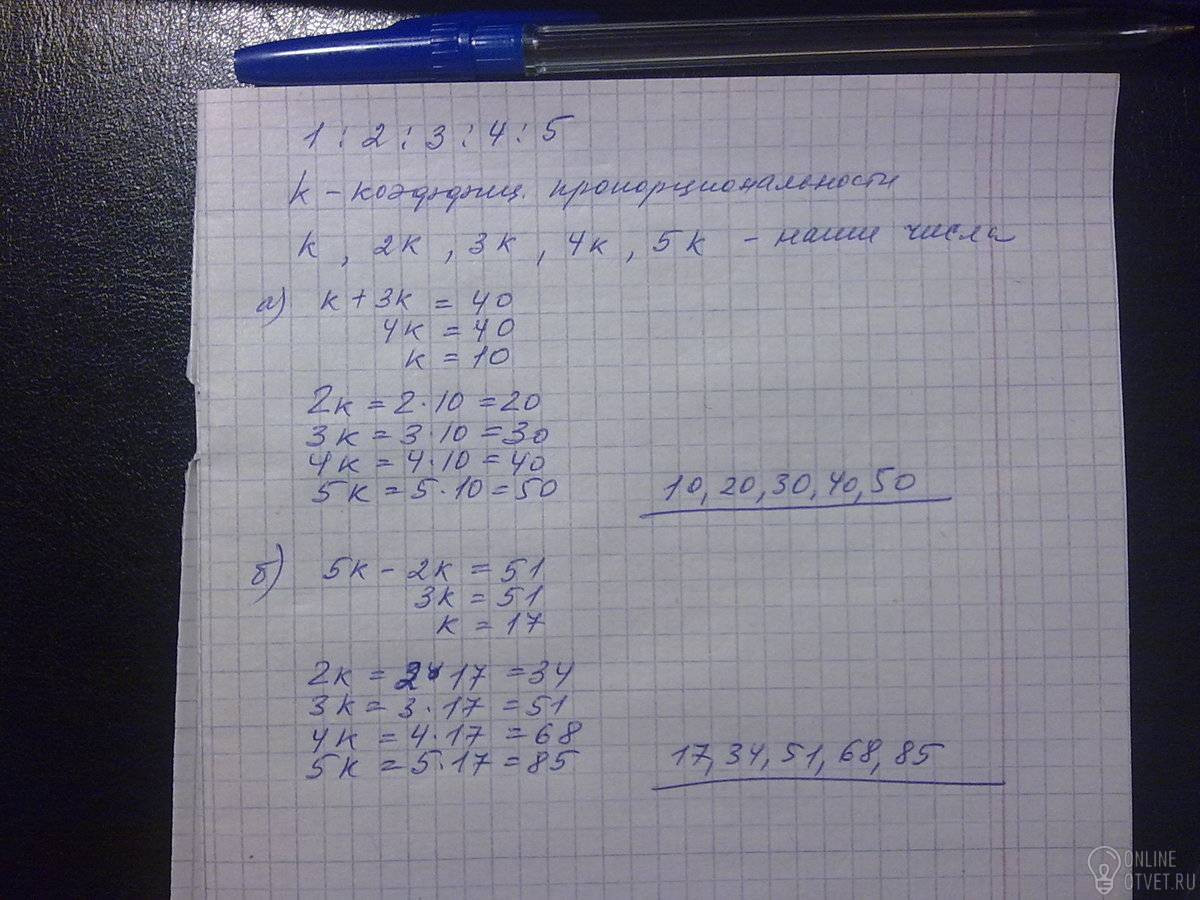 1 : 2 : 3 : 4 : 5
k - коэффиц. пропорциональности
k, 2k, 3k, 4k, 5k - наши числа
а) k + 3k = 40
4k = 40
k = 10
2k = 2·10 = 20
3k = 3·10 = 30
4k = 4·10 = 40
5k = 5·10 = 50
10, 20, 30, 40, 50
б) 5k - 2k = 51
3k = 51
k = 17
2k = 2·17 = 34
3k = 3·17 = 51
4k = 4·17 = 68
5k = 5·17 = 85
17, 34, 51, 68, 85
ONLINE
OTVET.RU